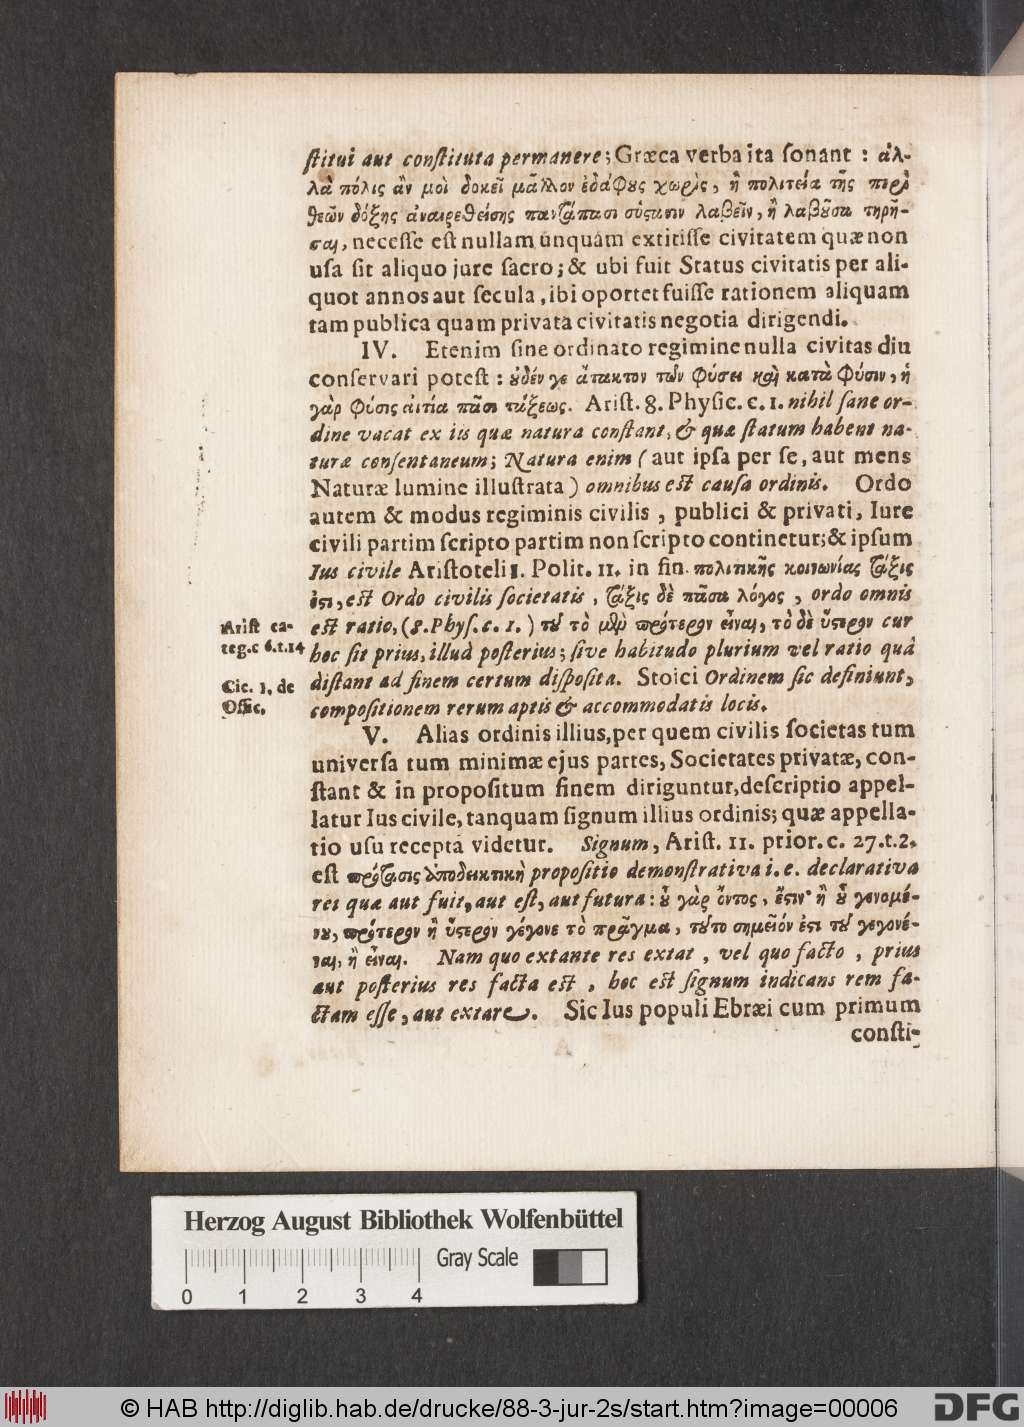 ſtitui aut conſtituta permanere; Græca verba ita ſonant : ἀλ-
λὰ πόλις ἂν μοὶ δοκεῖ μᾶλλον ἐδάφους χωρὶς, ἢ πολιτεία τῆς περὶ
θεῶν δόξης ἀναιρεθείσης παντάπασι σύστασιν λαβεῖν, ἢ λαβοῦσα τηρῆ-
σαι, neceſſe eſt nullam unquam extitiſſe civitatem quæ non
uſa ſit aliquo jure ſacro; & ubi fuit Status civitatis per ali-
quot annos aut ſecula, ibi oportet fuiſſe rationem aliquam
tam publica quam privata civitatis negotia dirigendi.
IV. Etenim ſine ordinato regimine nulla civitas diu
conſervari poteſt : οὐδέν γε ἄτακτον τῶν φύσει καὶ κατὰ φύσιν, ἡ
γὰρ φύσις αἰτία πᾶσι τάξεως. Ariſt. 8. Phyſic. c. 1. nihil ſane or-
dine vacat ex iis quæ natura conſtant, & quæ ſtatum habent na-
turæ conſentaneum; Natura enim ( aut ipſa per ſe, aut mens
Naturæ lumine illuſtrata ) omnibus eſt cauſa ordinis. Ordo
autem & modus regiminis civilis, publici & privati, Iure
civili partim ſcripto partim non ſcripto continetur; & ipſum
Ius civile Ariſtoteli 1. Polit. 11. in fin. πολιτικῆς κοινωνίας τάξις
ἐστι, eſt Ordo civilis ſocietatis, τάξις δὲ πᾶσα λόγος, ordo omnis
eſt ratio, (8. Phyſ. c. 1. ) τοῦ τὸ μὲν πρότερον εἶναι, τὸ δὲ ὕστερον cur
hoc ſit prius, illud poſterius; ſive habitudo plurium vel ratio quâ
diſtant ad finem certum diſpoſita. Stoici Ordinem ſic definiunt,
compoſitionem rerum aptis & accommodatis locis.
Ariſt ca-
teg. c 6. t. 14
Cic. 1. de
Offic.
V. Alias ordinis illius, per quem civilis ſocietas tum
univerſa tum minimæ ejus partes, Societates privatæ, con-
ſtant & in propoſitum finem diriguntur, deſcriptio appel-
latur Ius civile, tanquam ſignum illius ordinis; quæ appella-
tio uſu recepta videtur. Signum, Ariſt. 11. prior. c. 27. t. 2.
eſt πρότασις ἀποδεικτικὴ propoſitio demonſtrativa i. e. declarativa
rei quæ aut fuit, aut eſt, aut futura : οὗ γὰρ ὄντος, ἔστιν ἢ οὗ γενομέ-
νου, πρότερον ἢ ὕστερον γέγονε τὸ πρᾶγμα, τοῦτο σημεῖόν ἐστι τοῦ γεγονέ-
ναι, ἢ εἶναι. Nam quo extante res extat, vel quo facto, prius
aut poſterius res facta eſt, hoc eſt ſignum indicans rem fa-
ctam eſſe, aut extare. Sic Ius populi Ebræi cum primum
conſti-
Herzog August Bibliothek Wolfenbüttel
Gray Scale
0 1 2 3 4
© HAB http://diglib.hab.de/drucke/88-3-jur-2s/start.htm?image=00006
DFG